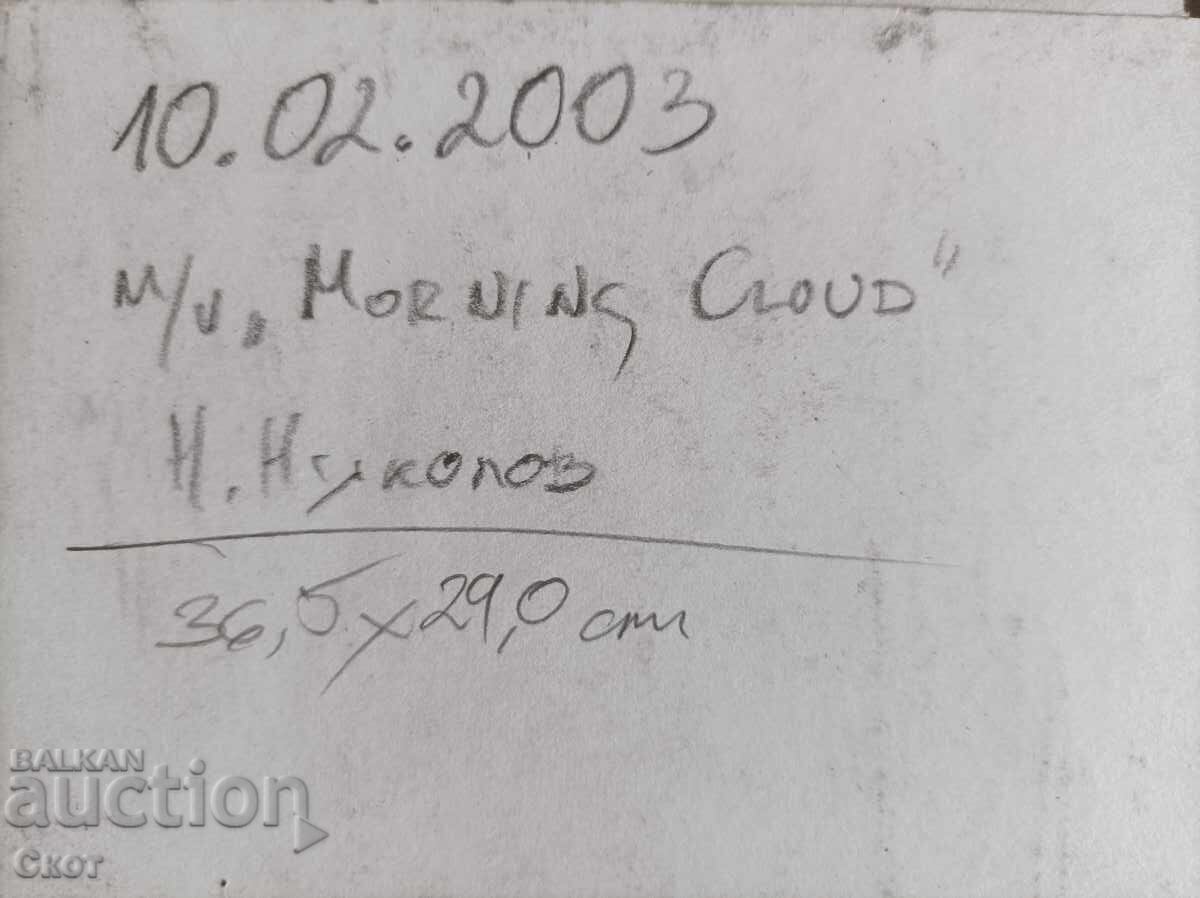 10.02.2003
м/v „MORNING CLOUD"
Н. Николов
36,5 x 29,0 cm
BALKAN
auction
Скот